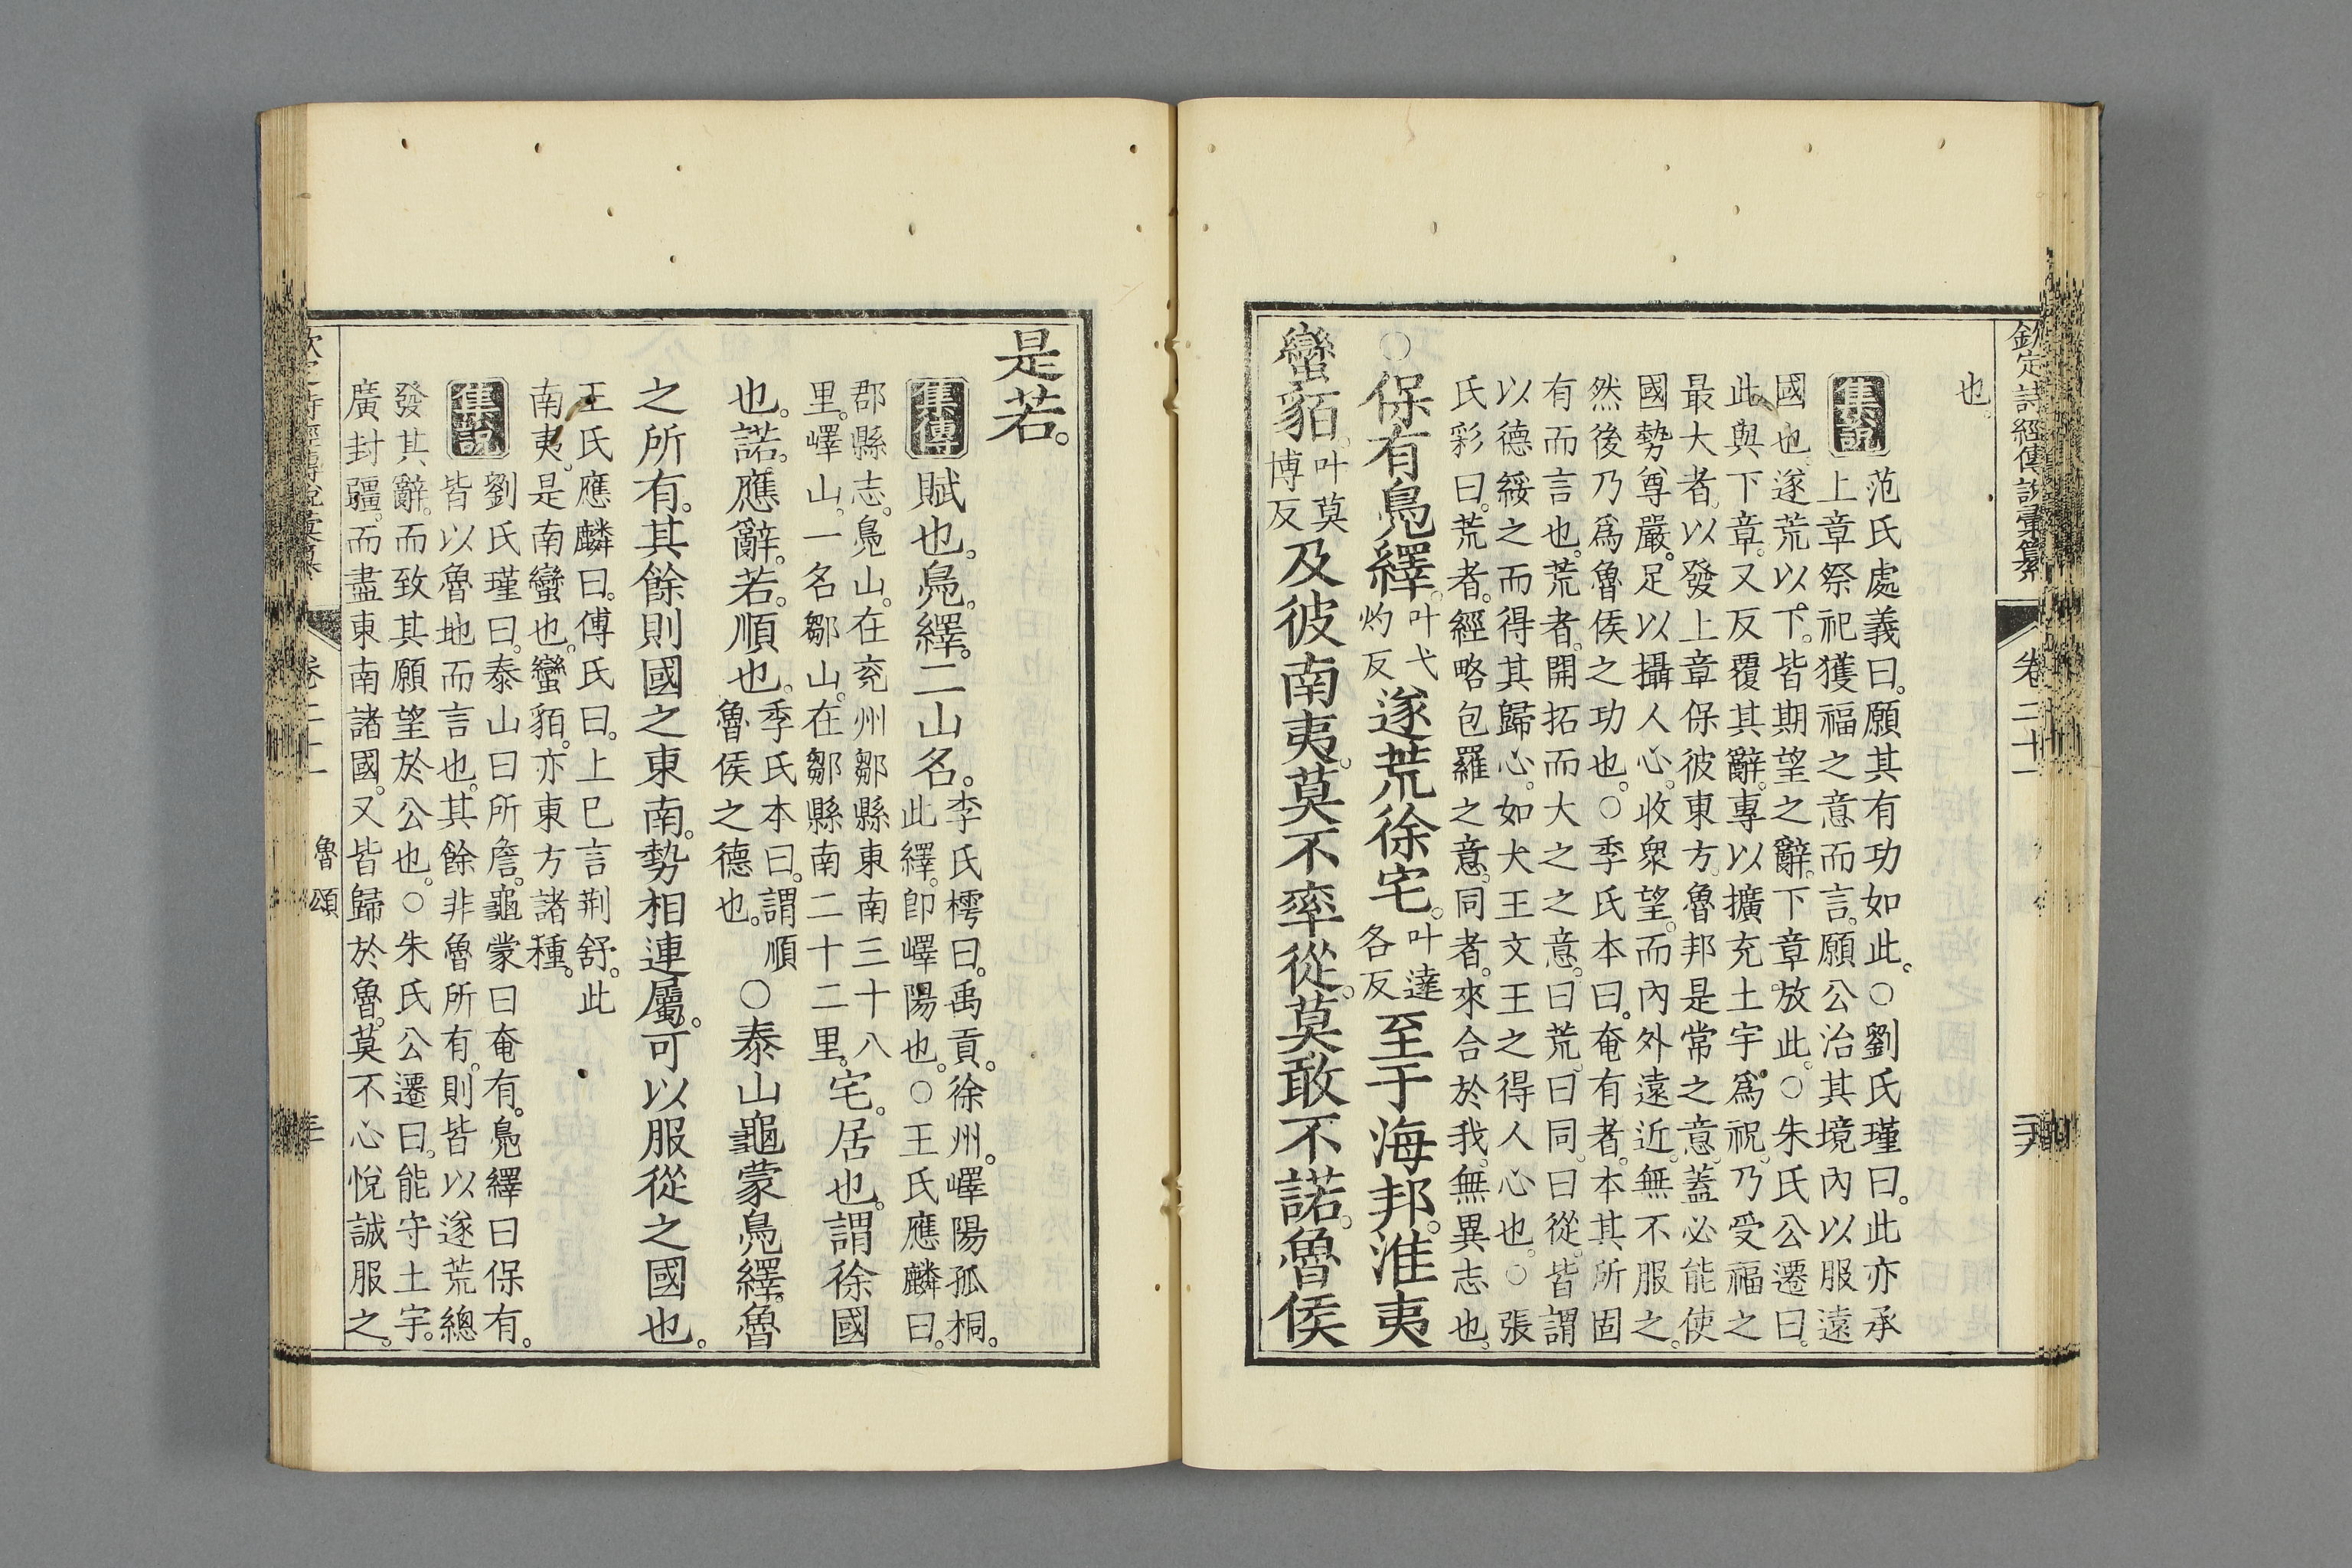 欽定詩經傳說彙纂 卷二十一
也。
集說 范氏處義曰。願其有功如此。○劉氏瑾曰。此亦承
上章祭祀獲福之意而言。願公治其境內以服遠
國也。遂荒以下。皆期望之辭。下章放此。○朱氏公遷曰。
此與下章。又反覆其辭。專以擴充土宇爲祝。乃受福之
最大者。以發上章保彼東方。魯邦是常之意。蓋必能使
國勢尊嚴。足以攝人心。收衆望。而內外遠近。無不服之。
然後乃爲魯侯之功也。○季氏本曰。奄有者。本其所固
有而言也。荒者。開拓而大之之意。曰荒。曰同。曰從。皆謂
以德綏之而得其歸心。如大王文王之得人心也。○張
氏彩曰。荒者。經略包羅之意。同者。來合於我。無異志也。
○保有鳧繹。叶弋灼反遂荒徐宅。叶達各反至于海邦。淮夷
蠻貊。叶莫博反及彼南夷。莫不率從。莫敢不諾。魯侯
是若。
集傳 賦也。鳧。繹。二山名。李氏樗曰。禹貢。徐州。嶧陽孤桐。
此繹。卽嶧陽也。○王氏應麟曰。
郡縣志。鳧山。在兗州鄒縣東南三十八
里。嶧山。一名鄒山。在鄒縣南二十二里。宅。居也。謂徐國
也。諾。應辭。若。順也。季氏本曰。謂順
魯侯之德也。○泰山龜蒙鳧繹。魯
之所有。其餘則國之東南。勢相連屬。可以服從之國也。
王氏應麟曰。傅氏曰。上已言荆舒。此
南夷。是南蠻也。蠻貊。亦東方諸種。
集說 劉氏瑾曰。泰山曰所詹。龜蒙曰奄有。鳧繹曰保有。
皆以魯地而言也。其餘非魯所有。則皆以遂荒總
發其辭。而致其願望於公也。○朱氏公遷曰。能守土宇。
廣封疆。而盡東南諸國。又皆歸於魯。莫不心悅誠服之。
魯頌